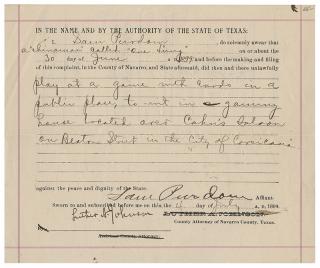 IN THE NAME AND BY THE AUTHORITY OF THE STATE OF TEXAS:
I, Sam Purdom, do solemnly swear that
a Chinaman called "One Lung" on or about the
30 day of June A. D. 1899 and before the making and filing
of this complaint, in the County of Navarro, and State aforesaid, did then and there unlawfully
play at a game with cards in a
public place, to-wit in a gaming
house located over Cohn's Saloon
on Beaton Street in the City of Corsicana
against the peace and dignity of the State.
Sam Purdom Affiant.
Sworn to and subscribed before me on this day of July A. D. 1899.
Luther A. Johnson LUTHER A. JOHNSON,
County Attorney of Navarro County, Texas.
County Attorney